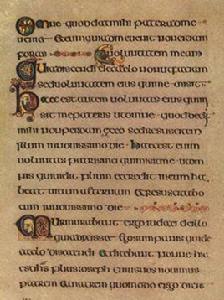 Omne quod dat mihi pater ad me
ueniet et eum qui uenit ad me non eieciam
foras uoluntatem meam
Quia descendi de caelo non ut faciam
sed uoluntatem eius qui me misit
Haec est autem uoluntas eius qui mi
sit me patris ut omne quod dedit
mihi non perdam ex eo sed resuscitem
illum nouissimo die Haec est enim
uoluntas patris mei ut omnis
qui uidet filium et credit in eum hab
eat uitam aeternam et resuscitabo
eum in nouissimo die
Murmurabant ergo iudei de illo
quia dixisset Ego sum panis qui
de caelo discendi et dicebant Nonne hic
est filius ioseph cuius nos nouimus
patrem et matrem quomodo ergo dicit